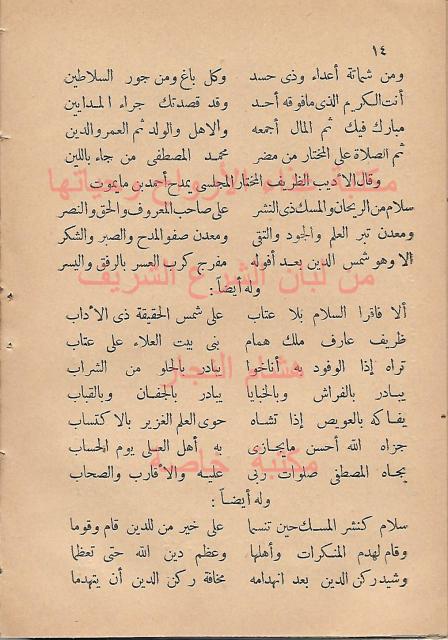 ١٤
ومن شماتة أعداء وذى حسد وكل باغ ومن جور السلاطين
أنت الكريم الذى مافوقه أحد وقد قصدتك جراء المدايين
مبارك فيك ثم المال أجمعه والاهل والولد ثم العمر والدين
ثم الصلاة على المختار من مضر محمد المصطفى من جاء بالدين
وقال الأديب الظريف المختار المجلسى يمدح أحمد بن مايموت
سلام من الريحان والمسك ذى النشر على صاحب المعروف والحق والنصر
ومعدن تبر العلم والجود والتقى ومعدن صفو المدح والصبر والشكر
ألا وهو شمس الدين بعد أفوله مفرج كرب العسر بالرفق واليسر
وله أيضاً :
ألا فاقرا السلام بلا عتاب على شمس الحقيقة ذى الأداب
ظريف عارف ملك همام بنى بيت العلاء على عتاب
تراه إذا الوفود به أناخوا يبادر بالحلو من الشراب
يبادر بالفراش وبالخبايا يبادر بالجفان وبالقباب
يفاكه بالعويص إذا تشاه حوى العلم الغزير بالاكتساب
جزاه الله أحسن مايجازى به أهل العلى يوم الحساب
بجاه المصطفى صلوات ربى عليه والأقارب والصحاب
وله أيضاً :
سلام كنشر المسك حين تنسما على خير من للدين قام وقوما
وقام لهدم المنكرات وأهلها وعظم دين الله حتى تعظما
وشيد ركن الدين بعد انهدامه مخافة ركن الدين أن يتهدما
مكتبة غذاء الأرواح وحياتها
من لبان الشرع الشريف
هشام النجار
مكتبة خاصة